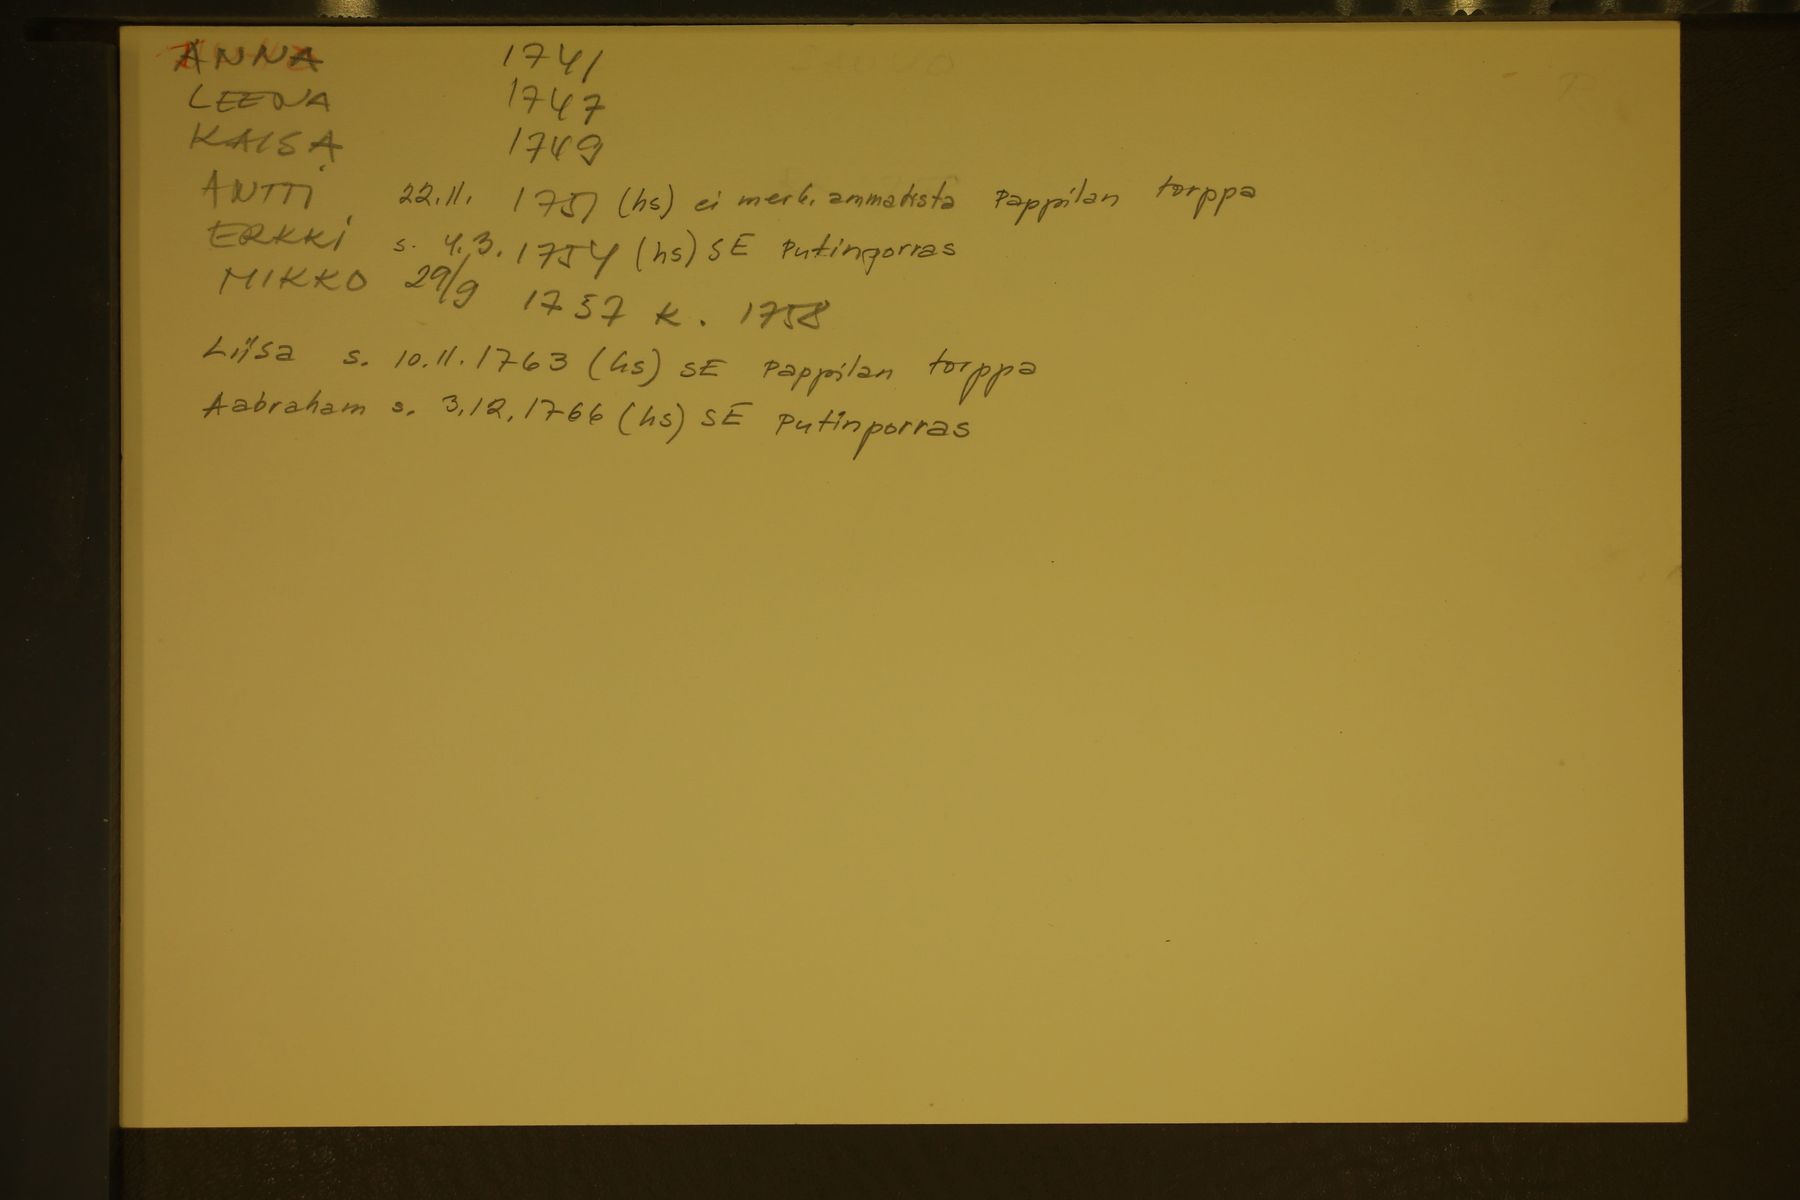 ANNA 1741
LEENA 1747
KAISA 1749
ANTTI 22.11. 1751 (hs) ei merk. ammatista Pappilan torppa
ERKKI s. 4.3. 1754 (hs) SE Putinporras
MIKKO 29/9 1757 K. 1758
Liisa s. 10.11.1763 (hs) SE Pappilan torppa
Aabraham s. 3.12.1766 (hs) SE Putinporras